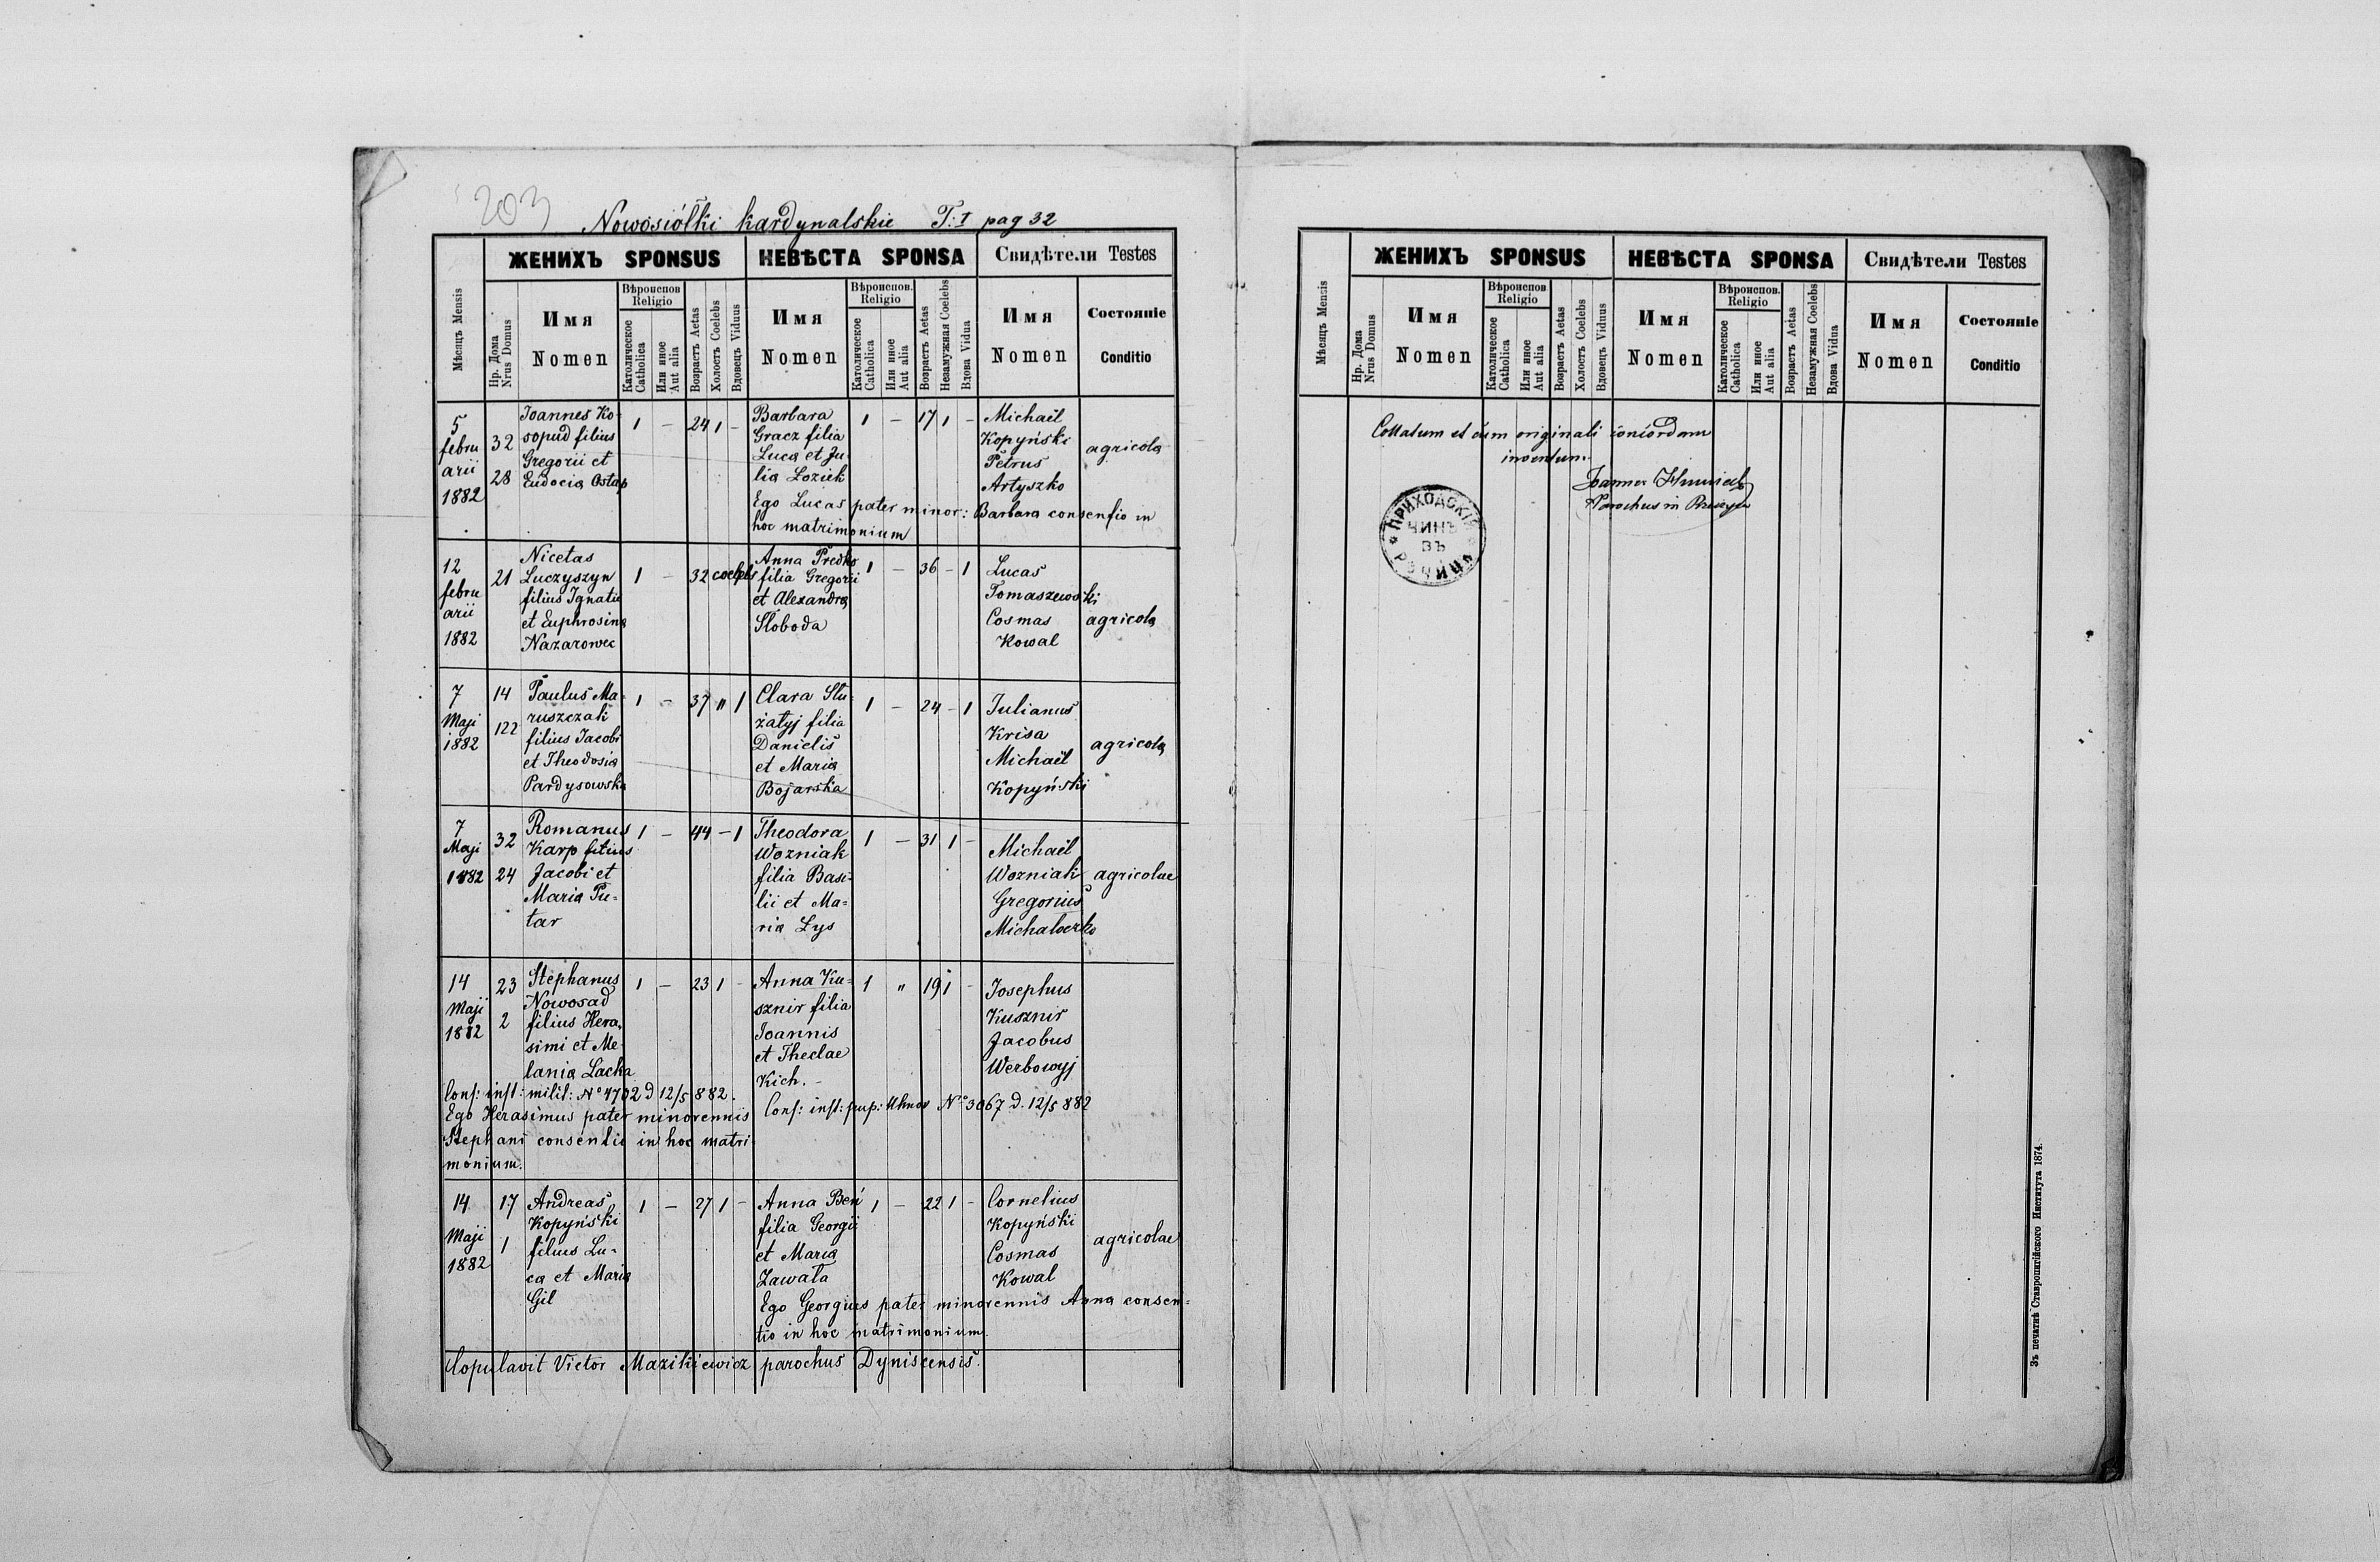 203
Nowosiółki kardynalskie T: I pag 32
Мѣсяцъ Mensis
ЖЕНИХЪ SPONSUS
НЕВѢСТА SPONSA
Свидѣтели Testes
Нр. Дома Nrus Domus
Имя Nomen
Вѣроиспов. Religio
Католическое Catholica
Или иное Aut alia
Возрастъ Aetas
Холостъ Coelebs
Вдовецъ Viduus
Имя Nomen
Вѣроиспов. Religio
Католическое Catholica
Или иное Aut alia
Возрастъ Aetas
Незамужная Coelebs
Вдова Vidua
Имя Nomen
Состояніе Conditio
5
febru
arii
1882
32
28
Joannes Ko-
sopud filius
Gregorii et
Eudocia Ostap
1 – 24 1 –
Barbara
Gracz filia
Luca et Ju-
lia Loziek
1 – 17 1 –
Michaël
Kopyński
Petrus
Artyszko
agricola
Ego Lucas pater minor: Barbara consentio in
hoc matrimonium
12
febru
arii
1882
21
Nicetas
Luczyszyn
filius Ignatii
et Euphrosina
Nazarowec
1 – 32 coelebs
Anna Predko
filia Gregorii
et Alexandra
Słoboda
1 – 36 – 1
Lucas
Tomaszewski
Cosmas
Kowal
agricola
7
Maji
1882
14
122
Paulus Ma-
ruszczak
filius Jacobi
et Theodosia
Pardysowska
1 – 37 " 1
Clara Słu-
żatyj filia
Danielis
et Maria
Bojarska
1 – 24 – 1
Julianus
Krisa
Michaël
Kopyński
agricola
7
Maji
1882
32
24
Romanus
Karp filius
Jacobi et
Maria Pu=
tar
1 – 44 – 1
Theodora
Wozniak
filia Basi=
lii et Ma=
ria Lys
1 – 31 1 –
Michaël
Wozniak
Gregorius
Michaloczko
agricolae
14
Maji
1882
23
2
Stephanus
Nowosad
filius Hera-
simi et Me-
lania Lacka
1 – 23 1 –
Anna Ku-
sznir filia
Joannis
et Theclae
Kich. –
1 " 19 1 –
Josephus
Kusznir
Jacobus
Werbowyj
Cons: inst: milit: No 4702 d 12/5 882.
Ego Herasimus pater minorennis
Stephani consentio in hoc matri-
monium.
Cons: inst: pup: Uhnov No 3067 d. 12/5 882
14
Maji
1882
17
1
Andreas
Kopyński
filius Lu-
ca et Maria
Gil
1 – 27 1 –
Anna Beń
filia Georgii
et Maria
Zawała
1 – 22 1 –
Cornelius
Kopyński
Cosmas
Kowal
agricolae
Ego Georgius pater minorennis Anna consen=
tio in hoc matrimonium.
Copulavit Victor Mazikiewicz parochus Dyniscensis.
Мѣсяцъ Mensis
ЖЕНИХЪ SPONSUS
НЕВѢСТА SPONSA
Свидѣтели Testes
Нр. Дома Nrus Domus
Имя Nomen
Вѣроиспов. Religio
Католическое Catholica
Или иное Aut alia
Возрастъ Aetas
Холостъ Coelebs
Вдовецъ Viduus
Имя Nomen
Вѣроиспов. Religio
Католическое Catholica
Или иное Aut alia
Возрастъ Aetas
Незамужная Coelebs
Вдова Vidua
Имя Nomen
Состояніе Conditio
Collatum et cum originali
inventum.
Joannes
Parochus in
ПРИХОДСКІЙ
ЧИНЪ
ВЪ
Зъ печатнѣ Ставропигійского Института 1874.